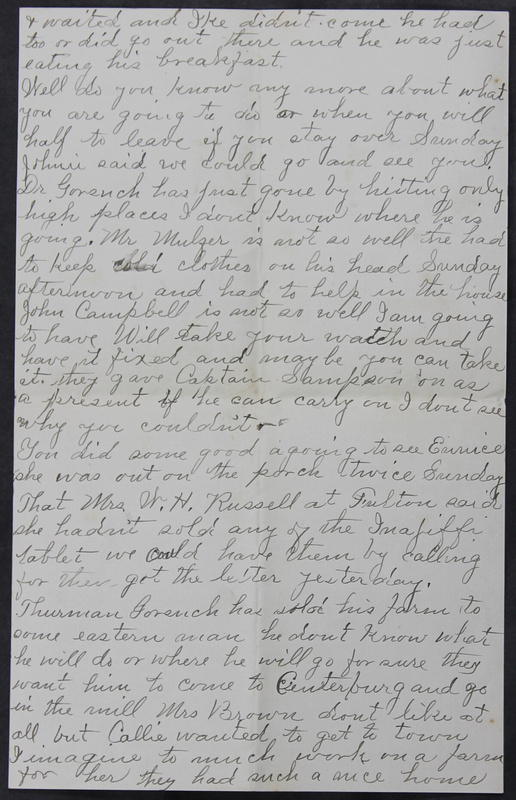 & waited and Ike didn't come he had
too or did go out there and he was just
eating his breakfast.
Well do you know any more about what
you are going to do or when you will
half to leave if you stay over Sunday
Johnie said we could go and see you.
Dr Gorsuch has just gone by hitting only
high places I dont know where he is
going. Mr Mulzer is not so well the had
to keep clothes on his head Sunday
afternoon and had to help in the house
John Campbell is not so well I am going
to have Will take your watch and
have it fixed and maybe you can take
it. they gave Captain Sampson on as
a present if he can carry on I dont see
why you couldn't
You did some good agoing to see Eunice
she was out on the porch twice Sunday
That Mrs W. H. Russell at Fulton said
she hadn't sold any of the
tablet we could have them by calling
for them got the letter yesterday.
Thurman Gorsuch has sold his farm to
some eastern man he dont know what
he will do or where he will go for sure they
want him to come to Centerburg and go
in the mill Mrs Brown dont like it
all but Callie wanted to get to town
I imagine to much work on a farm
for her they had such a nice home